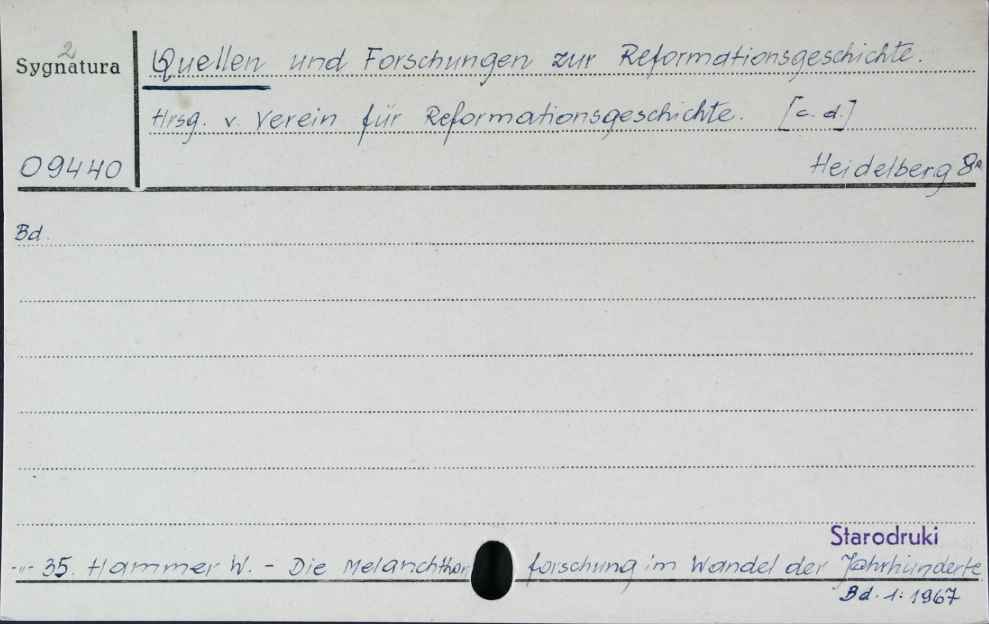 2
Sygnatura
Quellen und Forschungen zur Reformationsgeschichte.
Hrsg. v. Verein für Reformationsgeschichte. [c. d.]
09440
Heidelberg 8°
Bd.
Starodruki
-"- 35. Hammer W. - Die Melanchthon forschung im Wandel der Jahrhunderte
Bd. 1: 1967